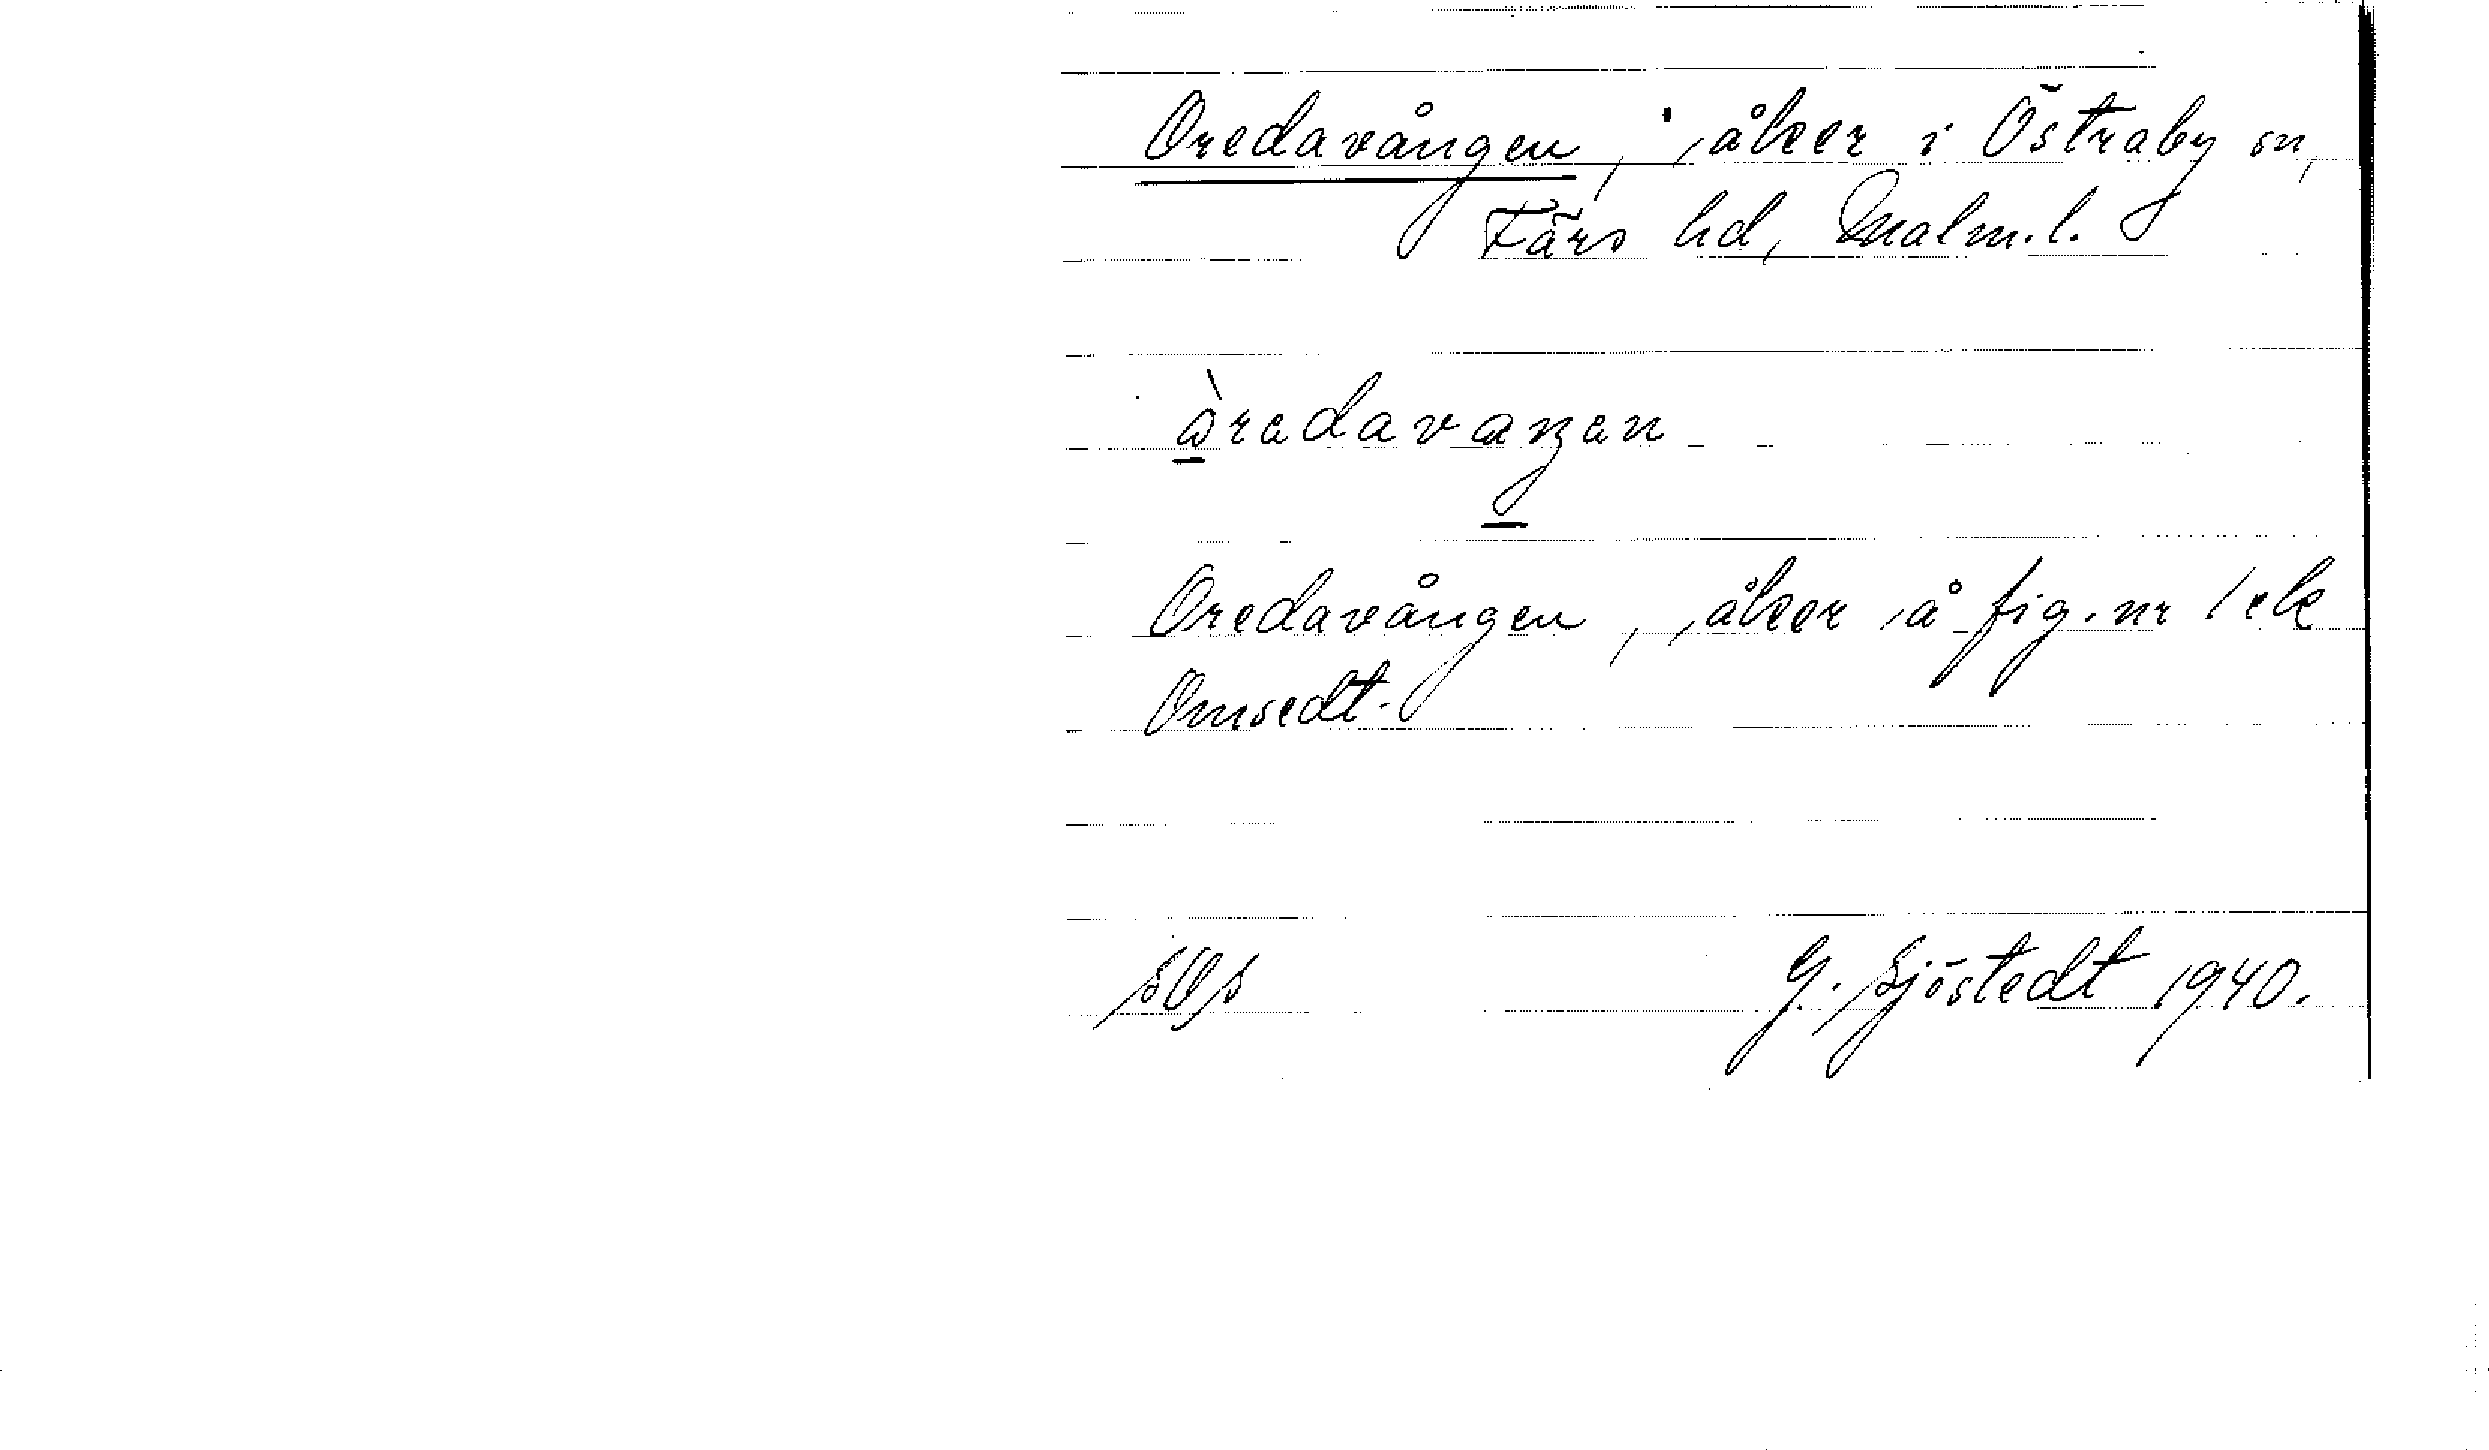 Oredavången, åker i Östraby sn,
Färs hd, Malm.l.
Oredavången, åker å fig. nr 1 ek
Omsedt.
SOS
G. Sjöstedt 1940.